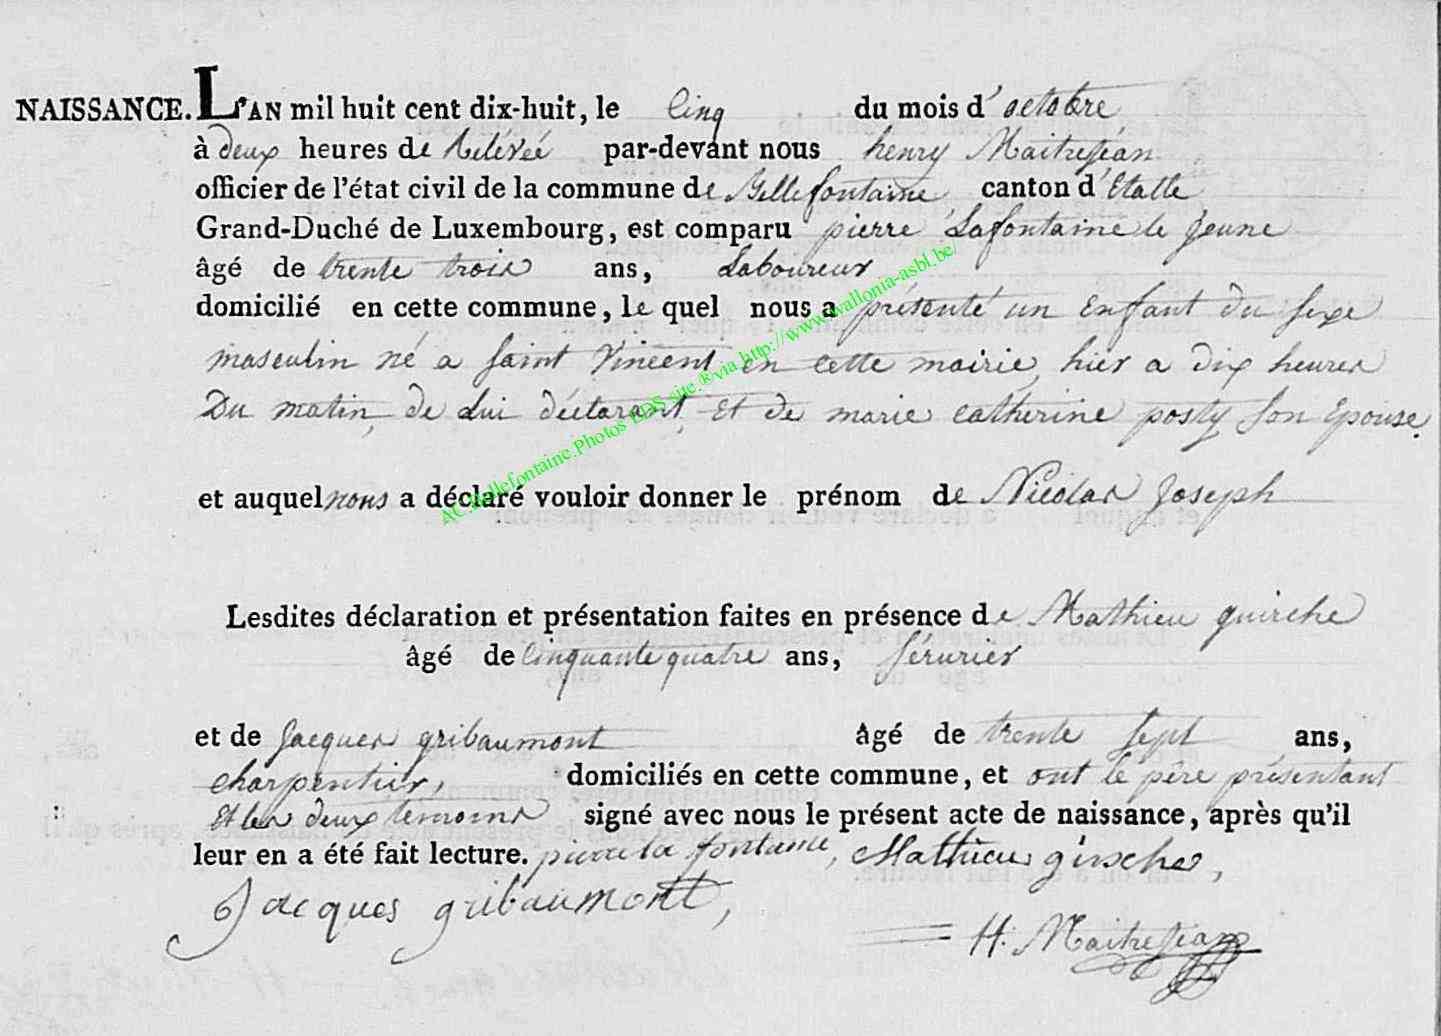 NAISSANCE. L'AN mil huit cent dix-huit, le Cinq du mois d'octobre
à deux heures de Relévée par-devant nous henry Maitrejéan
officier de l'état civil de la commune de Bellefontaine, canton d'Etalle
Grand-Duché de Luxembourg, est comparu pierre Lafontaine le Jeune
âgé de trente trois ans, Laboureur
domicilié en cette commune, le quel nous a présenté un Enfant du sexe
masculin né a saint Vincent en cette mairie, hier a dix heures
Du matin, de Lui déclarant, Et de marie catherine posty son Epouse.
AC.Bellefontaine.Photos BDS site.®via http://www.wallonia-asbl.be/
et auquel nous a déclaré vouloir donner le prénom de Nicolas Joseph
Lesdites déclaration et présentation faites en présence de Mathieu guirche
âgé de Cinquante quatre ans, sérurier
et de Jacques gribaumont âgé de trente sept ans,
charpentier, domiciliés en cette commune, et ont le père présentant
Et les deux temoins signé avec nous le présent acte de naissance, après qu'il
leur en a été fait lecture. pierre la fontaine, Mathieu girsche,
Jacques gribaumont,
H. Maitrejean